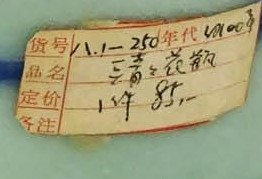 货号 八.1-250 年代 100年
品名 三音2花瓶
定价 1件 85.-
备注